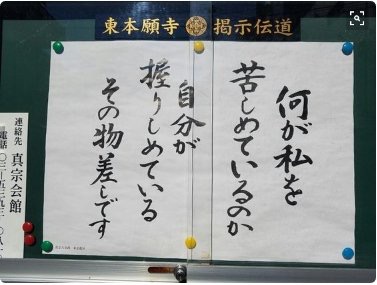 東本願寺 掲示伝道
何が私を
苦しめているのか
自分が
握りしめている
その物差しです
連絡先 真宗会館
電話